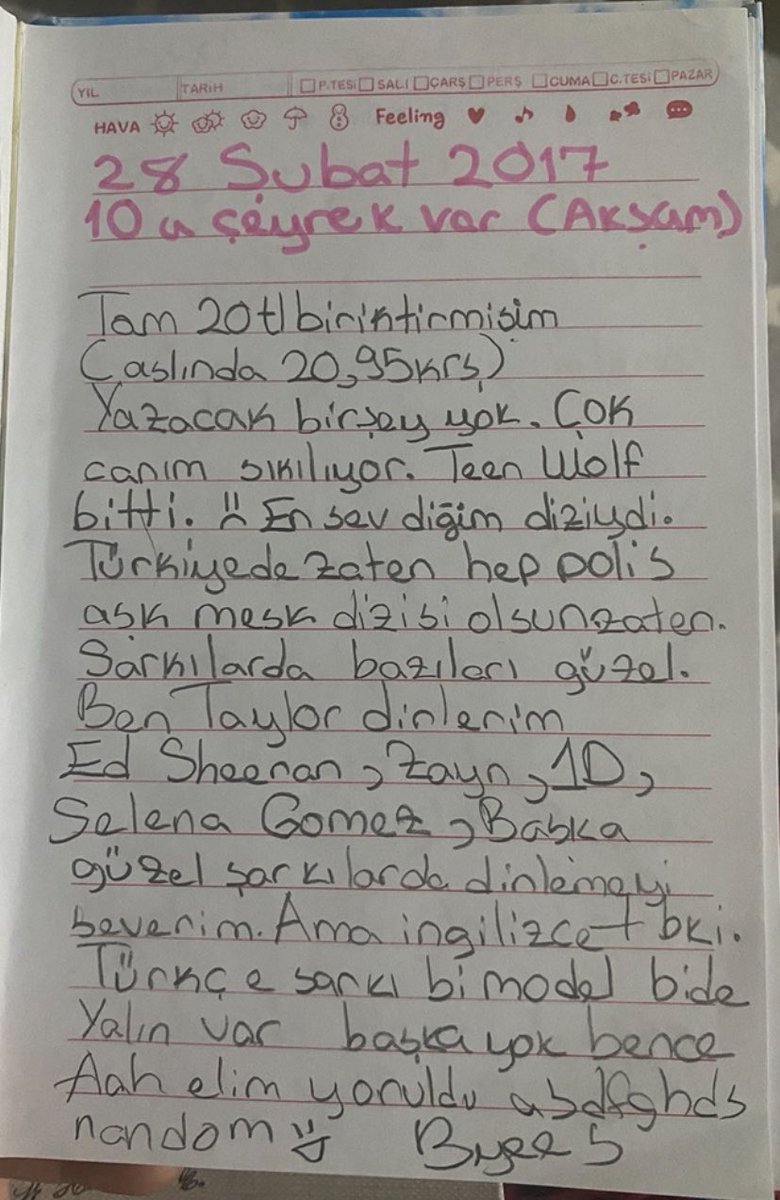 YIL TARİH P.TESİ SALI ÇARŞ PERŞ CUMA C.TESİ PAZAR
HAVA Feeling
28 Şubat 2017
10 a çeyrek var (Akşam)
Tam 20tl biriktirmişim
(aslında 20,95krş)
Yazacak birşey yok. Çok
canım sıkılıyor. Teen Wolf
bitti. En sevdiğim diziydi.
Türkiyede zaten hep polis
aşk meşk dizisi olsun zaten.
Şarkılarda bazıları güzel.
Ben Taylor dinlerim
Ed Sheeran, Zayn, 1D,
Selena Gomez, Başka
güzel şarkılarda dinlemeyi
severim. Ama ingilizce tbki.
Türkçe şarkı bi model bide
Yalın var başka yok bence
Aah elim yoruldu asdfghds
random Byee